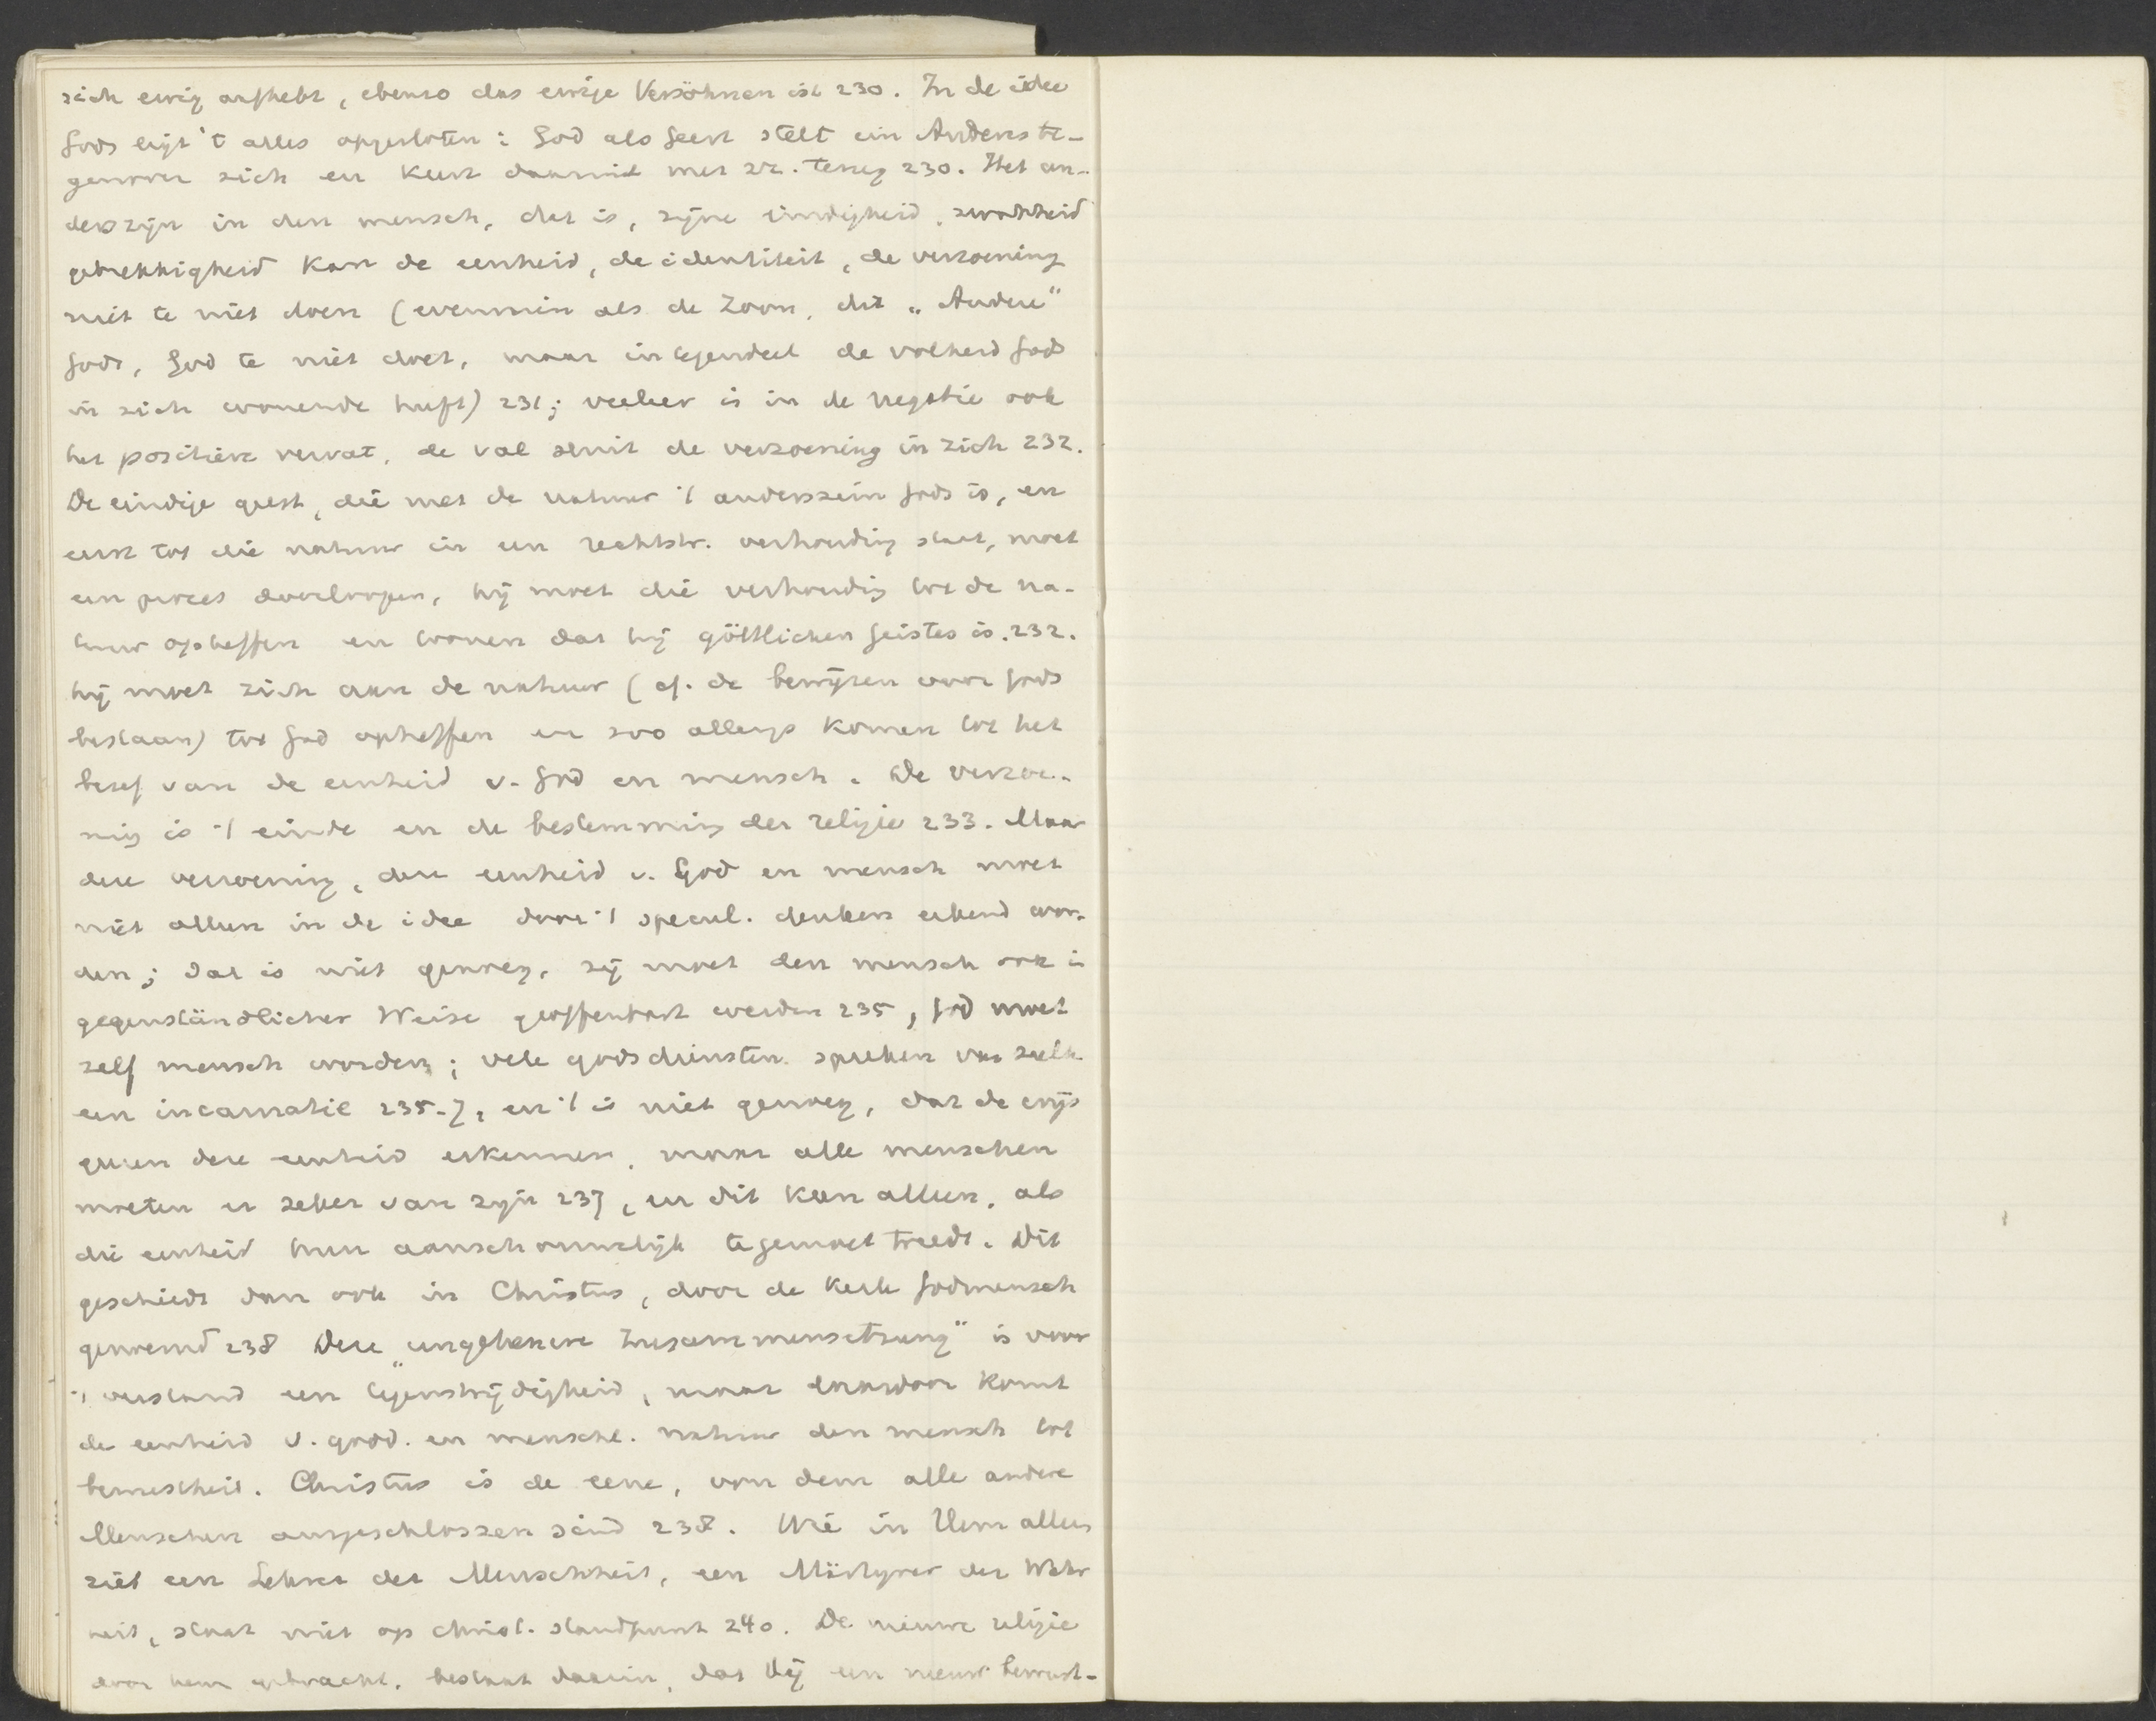 sich ewig aufhebt, ebenso das ewige Versöhnen ist 230. In de idee
Gods ligt 't alles opgesloten: God als Geest stelt ein Anderes te-
genover zich en keert daaruit met zz. terug 230. Het an-
derszijn in den mensch, dat is, zijne eindigheid, zwakheid
gebrekkigheid kan de eenheid, de identiteit, de verzoening
niet te niet doen (evenmin als de Zoon, dit „Andere"
Gods, God te niet doet, maar integendeel de volheid Gods
in zich wonende heeft) 231; veeleer is in de negatie ook
het positieve vervat, de val sluit de verzoening in zich 232.
De eindige geest, die met de natuur 't anderszein Gods is, en
eerst tot die natuur in een rechtstr. verhouding staat, moet
een proces doorloopen, hij moet die verhouding tot de na-
tuur opheffen en toonen dat hij göttlichen Geistes is. 232.
hij moet zich aan de natuur (cf. de bewijzen voor Gods
bestaan) tot God opheffen en zoo allengs komen tot het
besef van de eenheid v. God en mensch. De verzoe-
ning is 't einde en de bestemming der religie 233. Maar
deze verzoening, deze eenheid v. God en mensch moet
niet alleen in de idee door 't specul. denken erkend wor-
den; dat is niet genoeg, zij moet den mensch ook in
gegenständlicher Weise geoffenbart werden 235, God moet
zelf mensch worden; vele godsdiensten spreken van zulk
een incarnatie 235-7, en 't is niet genoeg, dat de wijs
geeren deze eenheid erkennen, maar alle menschen
moeten er zeker van zijn 237, en dit kan alleen, als
die eenheid hun aanschouwelijk tegemoet treedt. Dit
geschiedt dan ook in Christus, door de kerk Godmensch
genoemd 238 Deze „ungeheure Zusammensetzung" is voor
't verstand een tegenstrijdigheid, maar daardoor komt
de eenheid v. godd. en menschl. natuur den mensch tot
bewustheid. Christus is de eene, von dem alle andere
Menschen ausgeschlossen sind 238. Wie in Hem alleen
ziet een Lehrer der Menschheit, een Märtyrer der Wahr
heit, staat niet op christ. standpunt 240. De nieuwe religie
door hem gebracht, bestaat daarin, dat Hij een nieuw bewust-